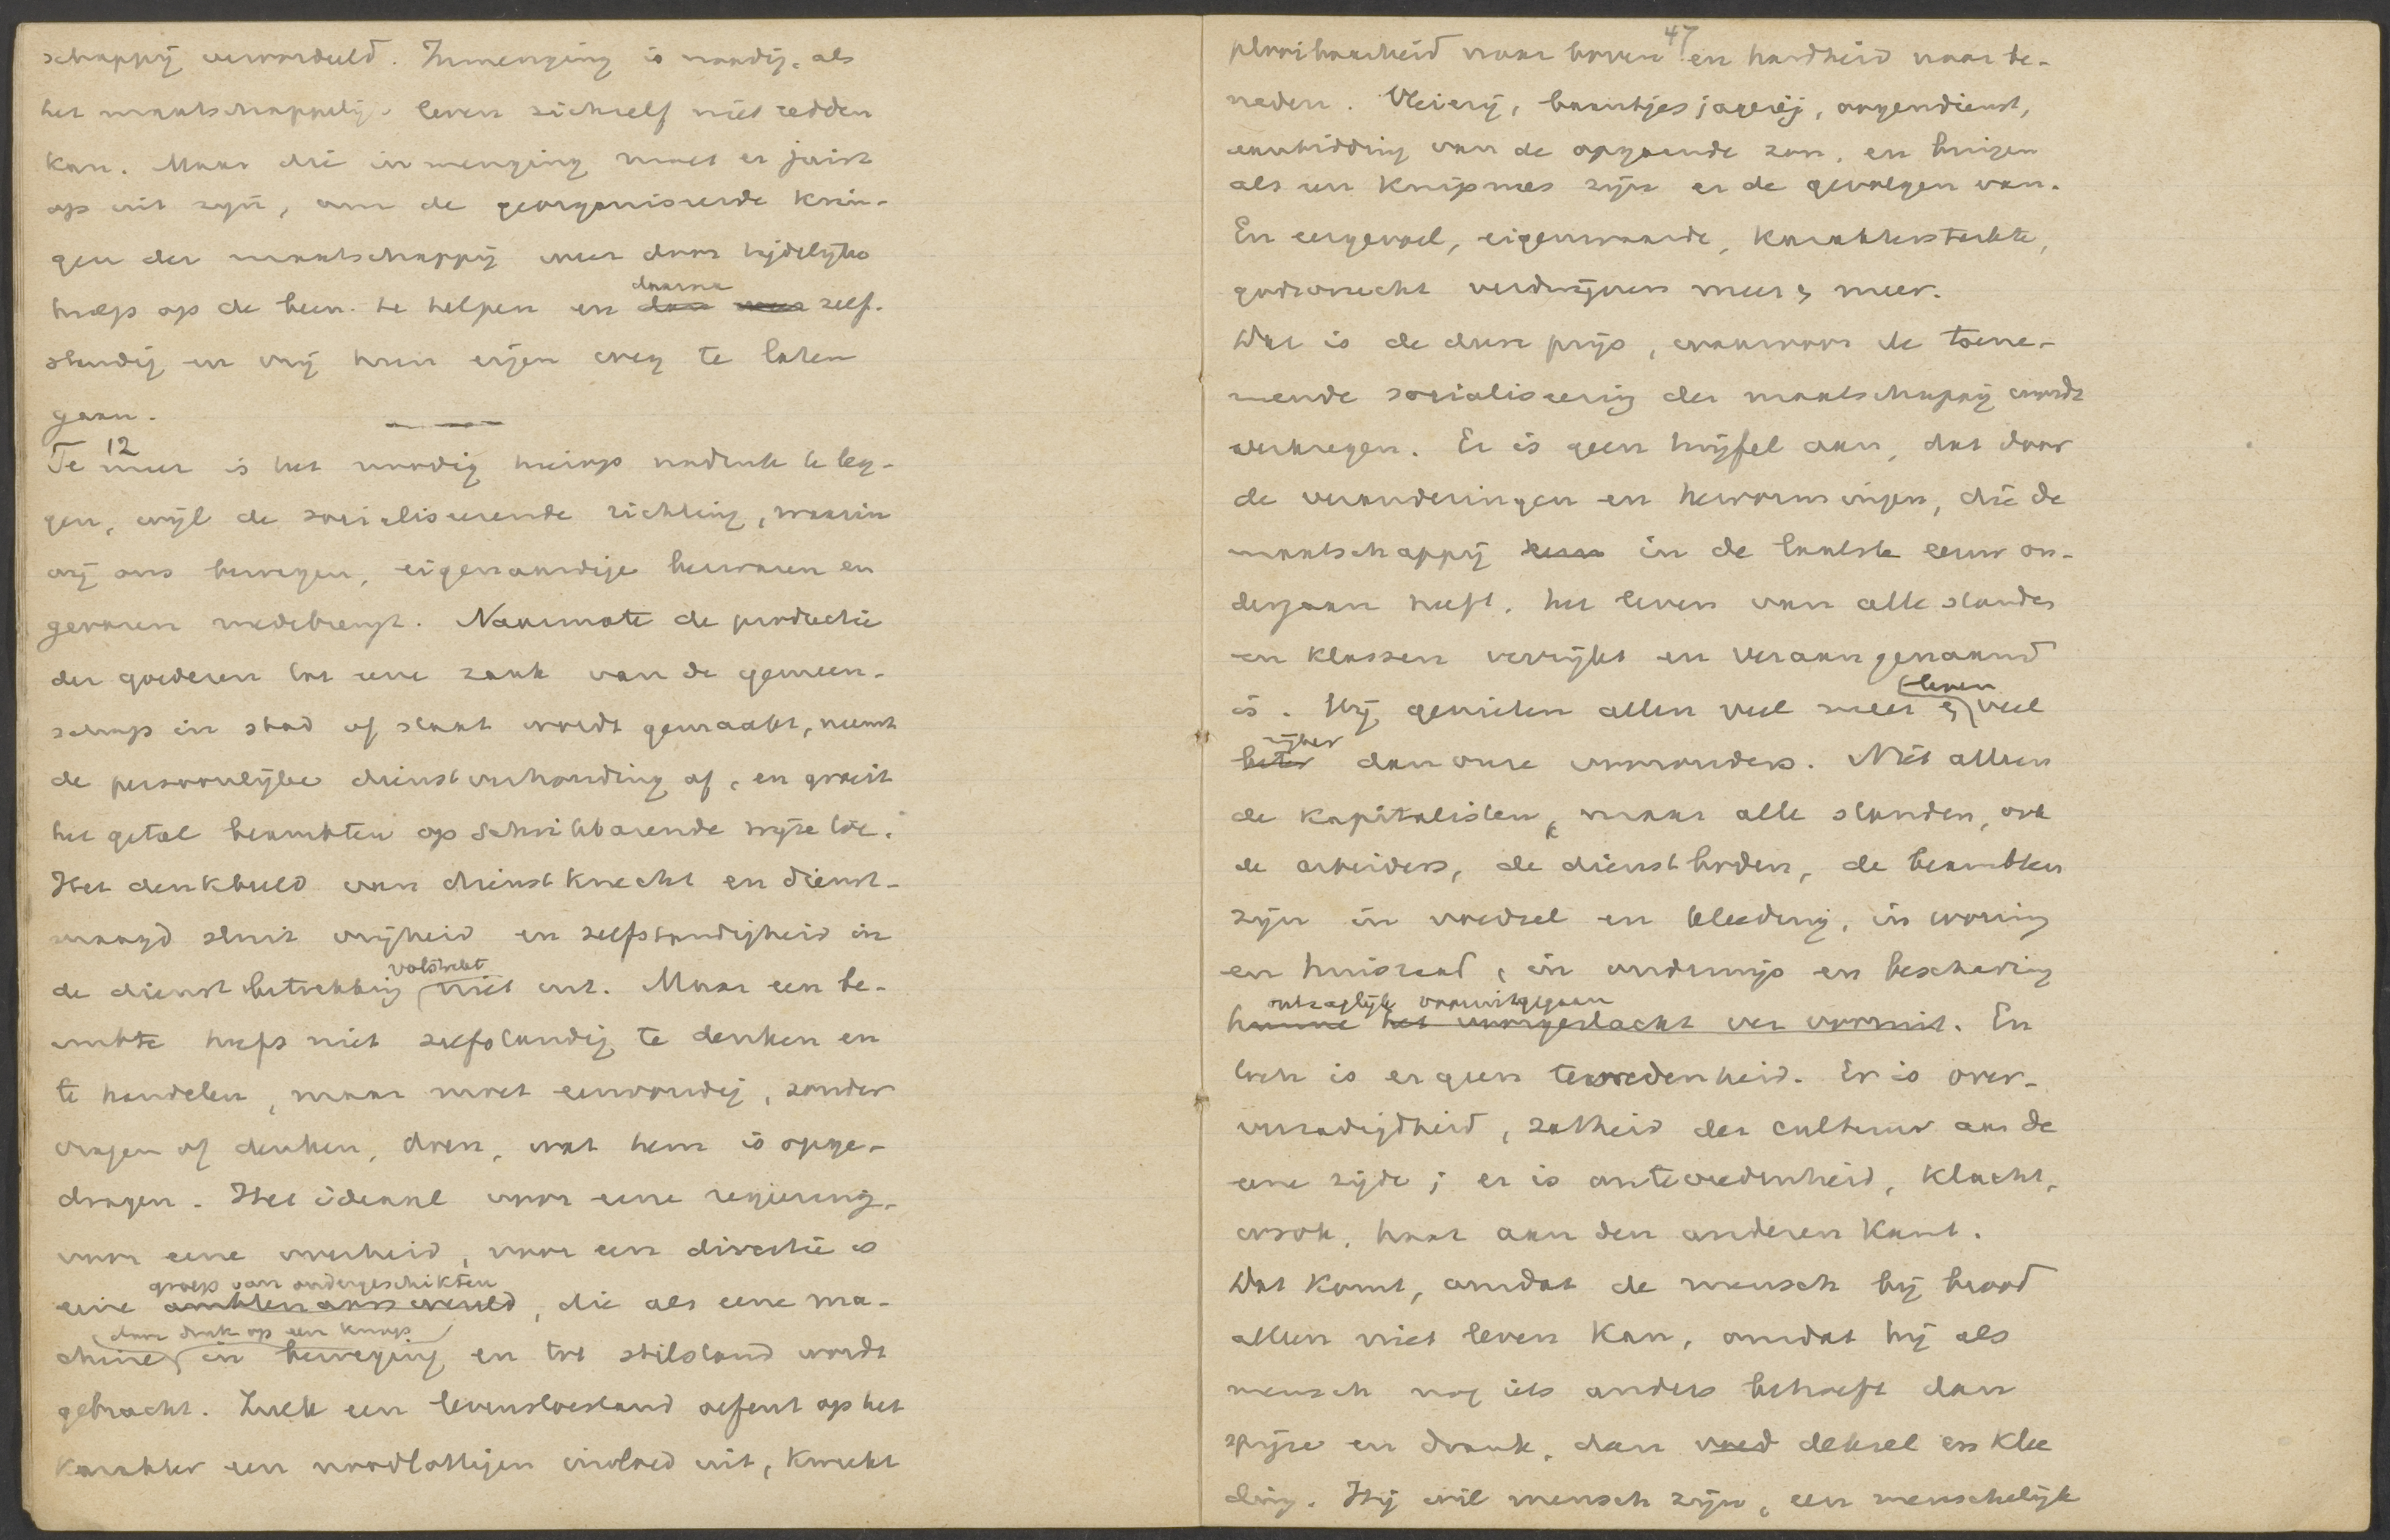 schappij veroordeeld. Inmenging is noodig, als
het maatschappelijk leven zichzelf niet redden
kan. Maar die inmenging moet er juist
op uit zijn, om de georganiseerde krin-
gen der maatschappij weer door tijdelijke
daarna
hulp op de been te helpen en dan weer zelf-
standig en vrij hun eigen weg te laten
gaan.
12
Te meer is het noodig hierop nadruk te leg-
gen, wijl de socialiseerende richting, waarin
wij ons bewegen, eigenaardige bezwaren en
gevaren medebrengt. Naarmate de productie
der goederen tot eene zaak van de gemeen-
schap in stad of staat wordt gemaakt, neemt
de persoonlijke dienstverhouding af, en groeit
het getal beambten op schrikbarende wijze toe.
Het denkbeeld van dienstknecht en dienst-
maagd sluit vrijheid en zelfstandigheid in
volstrekt
de dienstbetrekking niet uit. Maar een be-
ambte hoeft niet zelfstandig te denken en
te handelen, maar moet eenvoudig, zonder
vragen of denken, doen, wat hem is opge-
dragen. Het ideaal voor eene regiering,
voor eene overheid, voor een directie is
groep van ondergeschikten
eene ambtenaarswereld, die als eene ma-
door druk op een knop
chine in beweging en tot stilstand wordt
gebracht. Zulk een levenstoestand oefent op het
karakter een noodlottigen invloed uit, kweekt
47
plooibaarheid naar boven en hardheid naar be-
neden. Vleierij, baantjesjagerij, oogendienst,
aanbidding van de opgaande zon, en buigen
als een knipmes zijn er de gevolgen van.
En eergevoel, eigenwaarde, karaktersterkte,
godsvrucht verdwijnen meer & meer.
Dat is de dure prijs, waarvoor de toene-
mende socialiseering der maatschappij wordt
verkregen. Er is geen twijfel aan, dat door
de veranderingen en hervormingen, die de
maatschappij in de laatste eeuw on-
dergaan heeft, het leven van alle standen
en klassen verrijkt en veraangenaamd
leven
is. Wij genieten allen veel meer & veel
rijker
beter dan onze voorouders. Niet alleen
de kapitalisten, maar alle standen, ook
de arbeiders, de dienstboden, de beambten
zijn in voedsel en kleeding, in woning
en huisraad, in onderwijs en beschaving
ontzaglijk vooruitgegaan
hunne het voorgeslacht ver vooruit. En
toch is er geen tevredenheid. Er is over-
verzadigdheid, zatheid der cultuur aan de
eene zijde; er is ontevredenheid, klacht,
wrok, haat aan den anderen kant.
Dat komt, omdat de mensch bij brood
alleen niet leven kan, omdat hij als
mensch nog iets anders behoeft dan
spijze en drank, dan voed deksel en klee
ding. Hij wil mensch zijn, een menschelijk